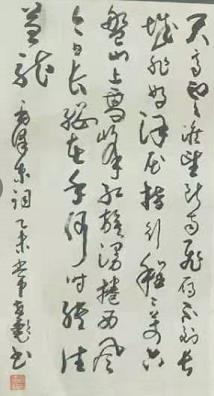 天高云淡望断南飞雁不到长
城非好汉屈指行程二万六
盘山上高峰红旗漫捲西风
今日长缨在手何时缚住
苍龙 毛泽东词 乙未 书